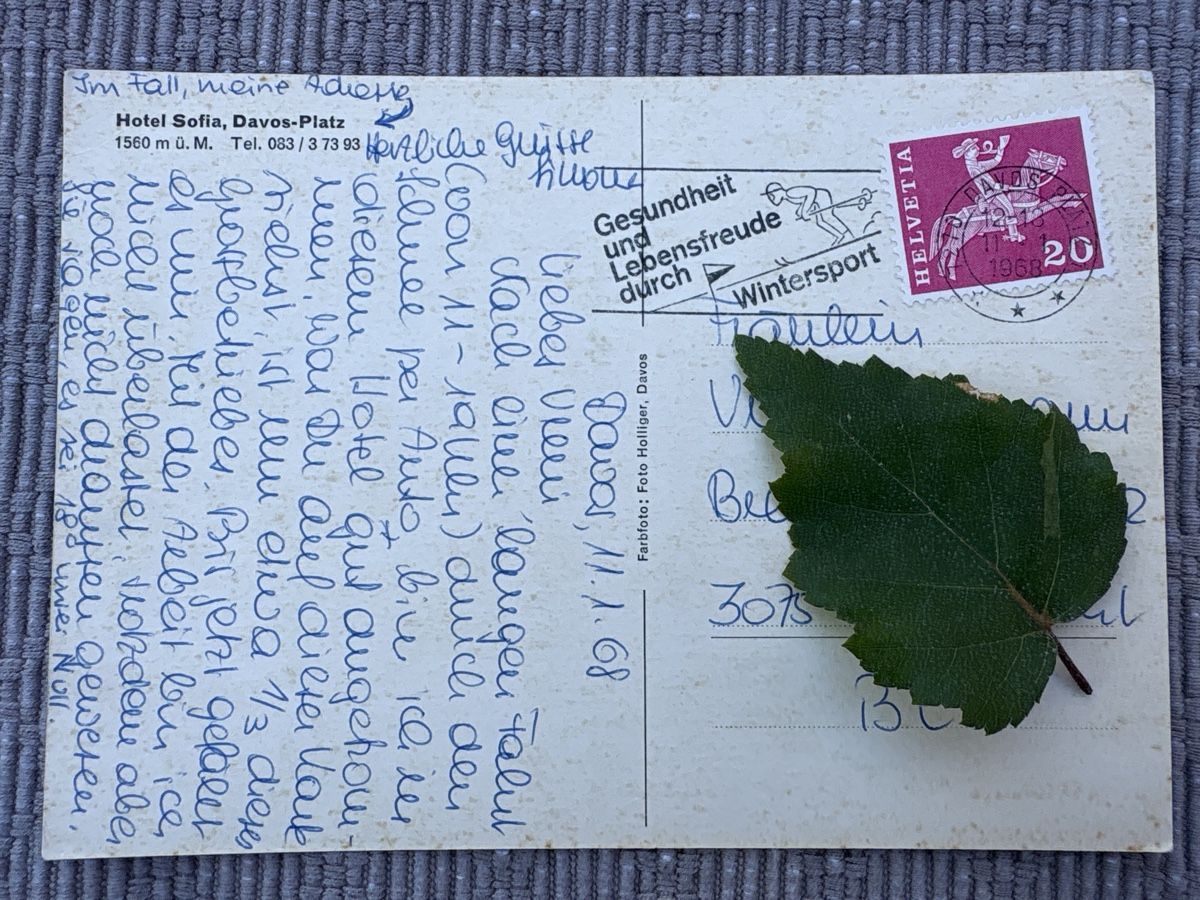 Im Fall, meine Adresse
Hotel Sofia, Davos-Platz
1560 m ü. M. Tel. 083 / 3 73 93
Davos, 11.1.68
Liebes Vreni
Nach einer langen Fahrt
(von 11 - 19 Uhr) durch den
Schnee per Auto, bin ich in
diesem Hotel gut angekom-
men. Was Du auf dieser Karte
siehst, ist nur etwa 1/3 dieses
Grossbetriebes. Bis jetzt gefällt
es mir. Mit der Arbeit bin ich
nicht überlastet, trotzdem aber
grad nicht draussen gewesen.
Sie sagen, es sei 18° unter Null.
Herzliche Grüsse
Farbfoto: Foto Holliger, Davos
Gesundheit
und
Lebensfreude
durch
Wintersport
HELVETIA
20
DAVOS
1968
Fräulein